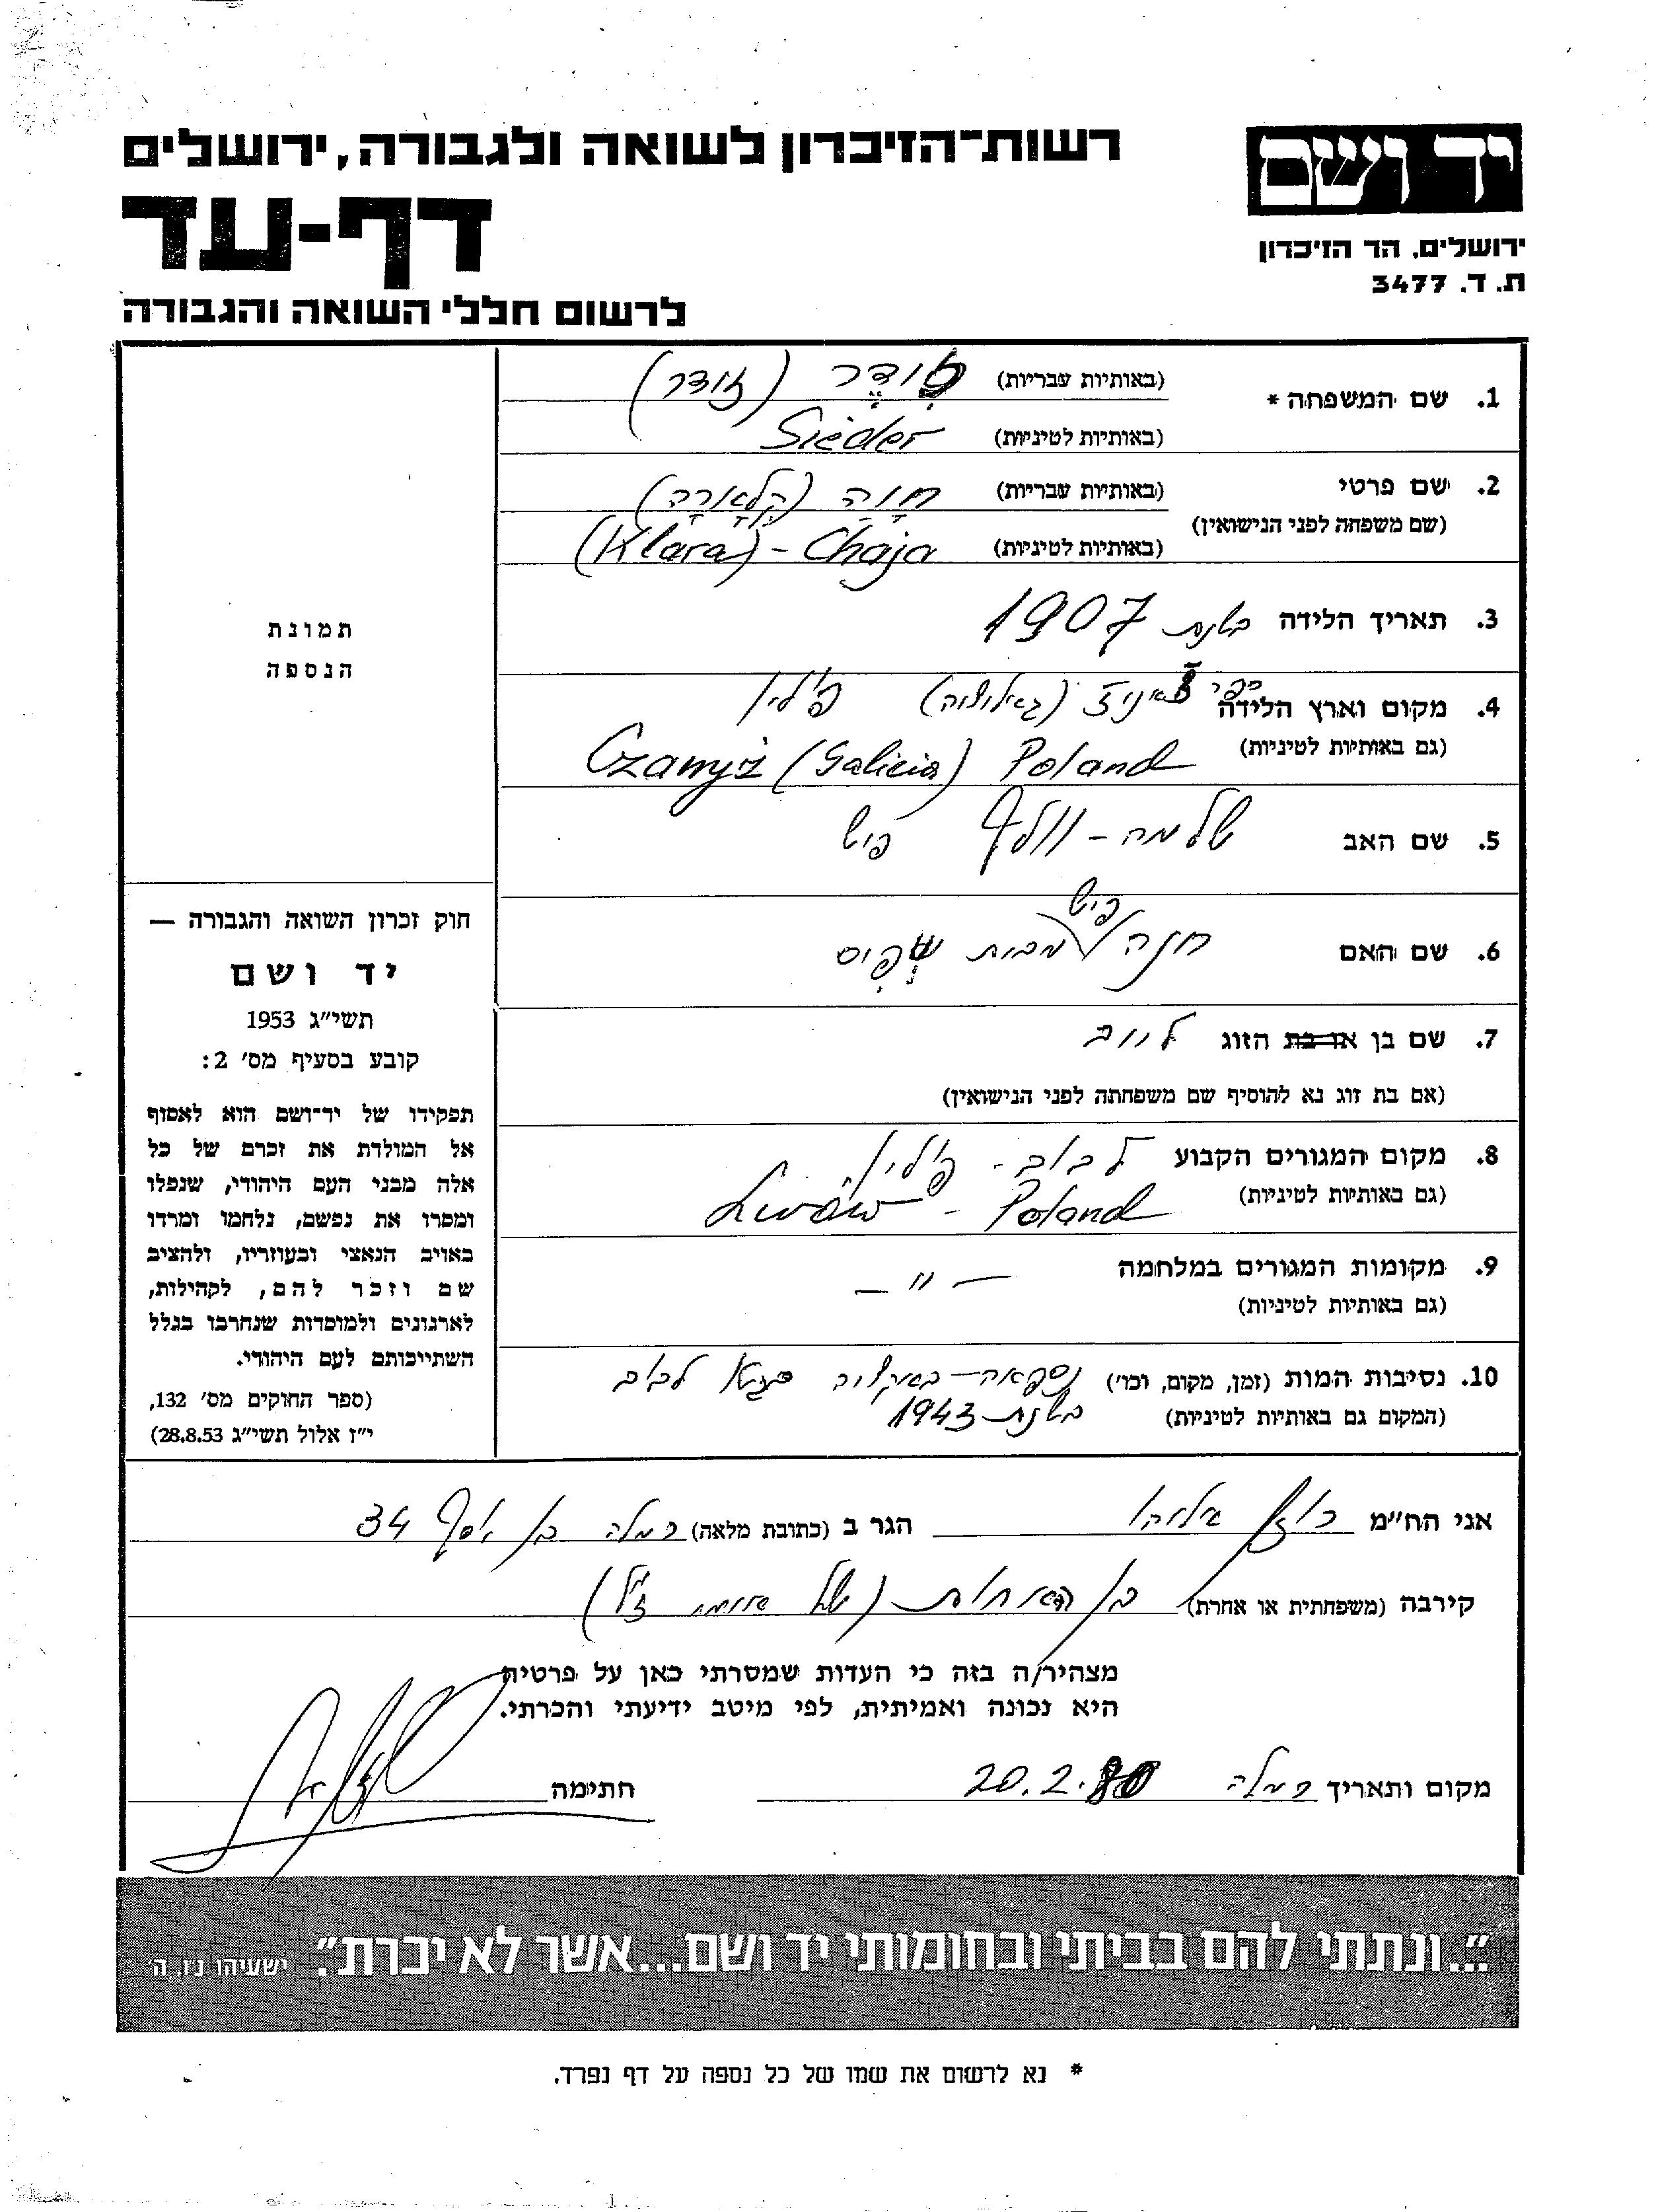 יד ושם
ירושלים, הר הזיכרון
ת. ד. 3477
רשות־הזיכרון לשואה ולגבורה, ירושלים
דף-עד
לרשום חללי השואה והגבורה
1. שם המשפחה * (באותיות עבריות) סִידֶר (זידר)
(באותיות לטיניות) Sieder
2. שם פרטי (באותיות עבריות) חָיָה (קלָארָה)
(שם משפחה לפני הנישואין) (באותיות לטיניות) (Klara) - Chaja
3. תאריך הלידה בשנת 1907
4. מקום וארץ הלידה (גאליציה) פולין
(גם באותיות לטיניות) Czanyż (Galicia) Poland
5. שם האב שלמה - וולף
6. שם האם חנה מבית שפיס
7. שם בן או בת הזוג ליוב
(אם בת זוג נא להוסיף שם משפחתה לפני הנישואין)
8. מקום המגורים הקבוע לבוב - פולין
(גם באותיות לטיניות) Lwów - Poland
9. מקומות המגורים במלחמה — " —
(גם באותיות לטיניות)
10. נסיבות המות (זמן, מקום, וכו') נספתה באקציה בגטו לבוב
(המקום גם באותיות לטיניות) בשנת 1943
תמונת
הנספה
חוק זכרון השואה והגבורה —
יד ושם
תשי"ג 1953
קובע בסעיף מס' 2:
תפקידו של יד־ושם הוא לאסוף
אל המולדת את זכרם של כל
אלה מבני העם היהודי, שנפלו
ומסרו את נפשם, נלחמו ומרדו
באויב הנאצי ובעוזריו, ולהציב
שם וזכר להם, לקהילות,
לארגונים ולמוסדות שנחרבו בגלל
השתייכותם לעם היהודי.
(ספר החוקים מס' 132,
י"ז אלול תשי"ג 28.8.53)
אני הח"מ הגר ב (כתובת מלאה) רמלה 34
קירבה (משפחתית או אחרת) בן האחות (של אימי ז"ל)
מצהיר/ה בזה כי העדות שמסרתי כאן על פרטיה
היא נכונה ואמיתית, לפי מיטב ידיעתי והכרתי.
מקום ותאריך רמלה 20.2.80 חתימה
"...ונתתי להם בביתי ובחומותי יד ושם...אשר לא יכרת." ישעיהו נ"ו, ה'
* נא לרשום את שמו של כל נספה על דף נפרד.